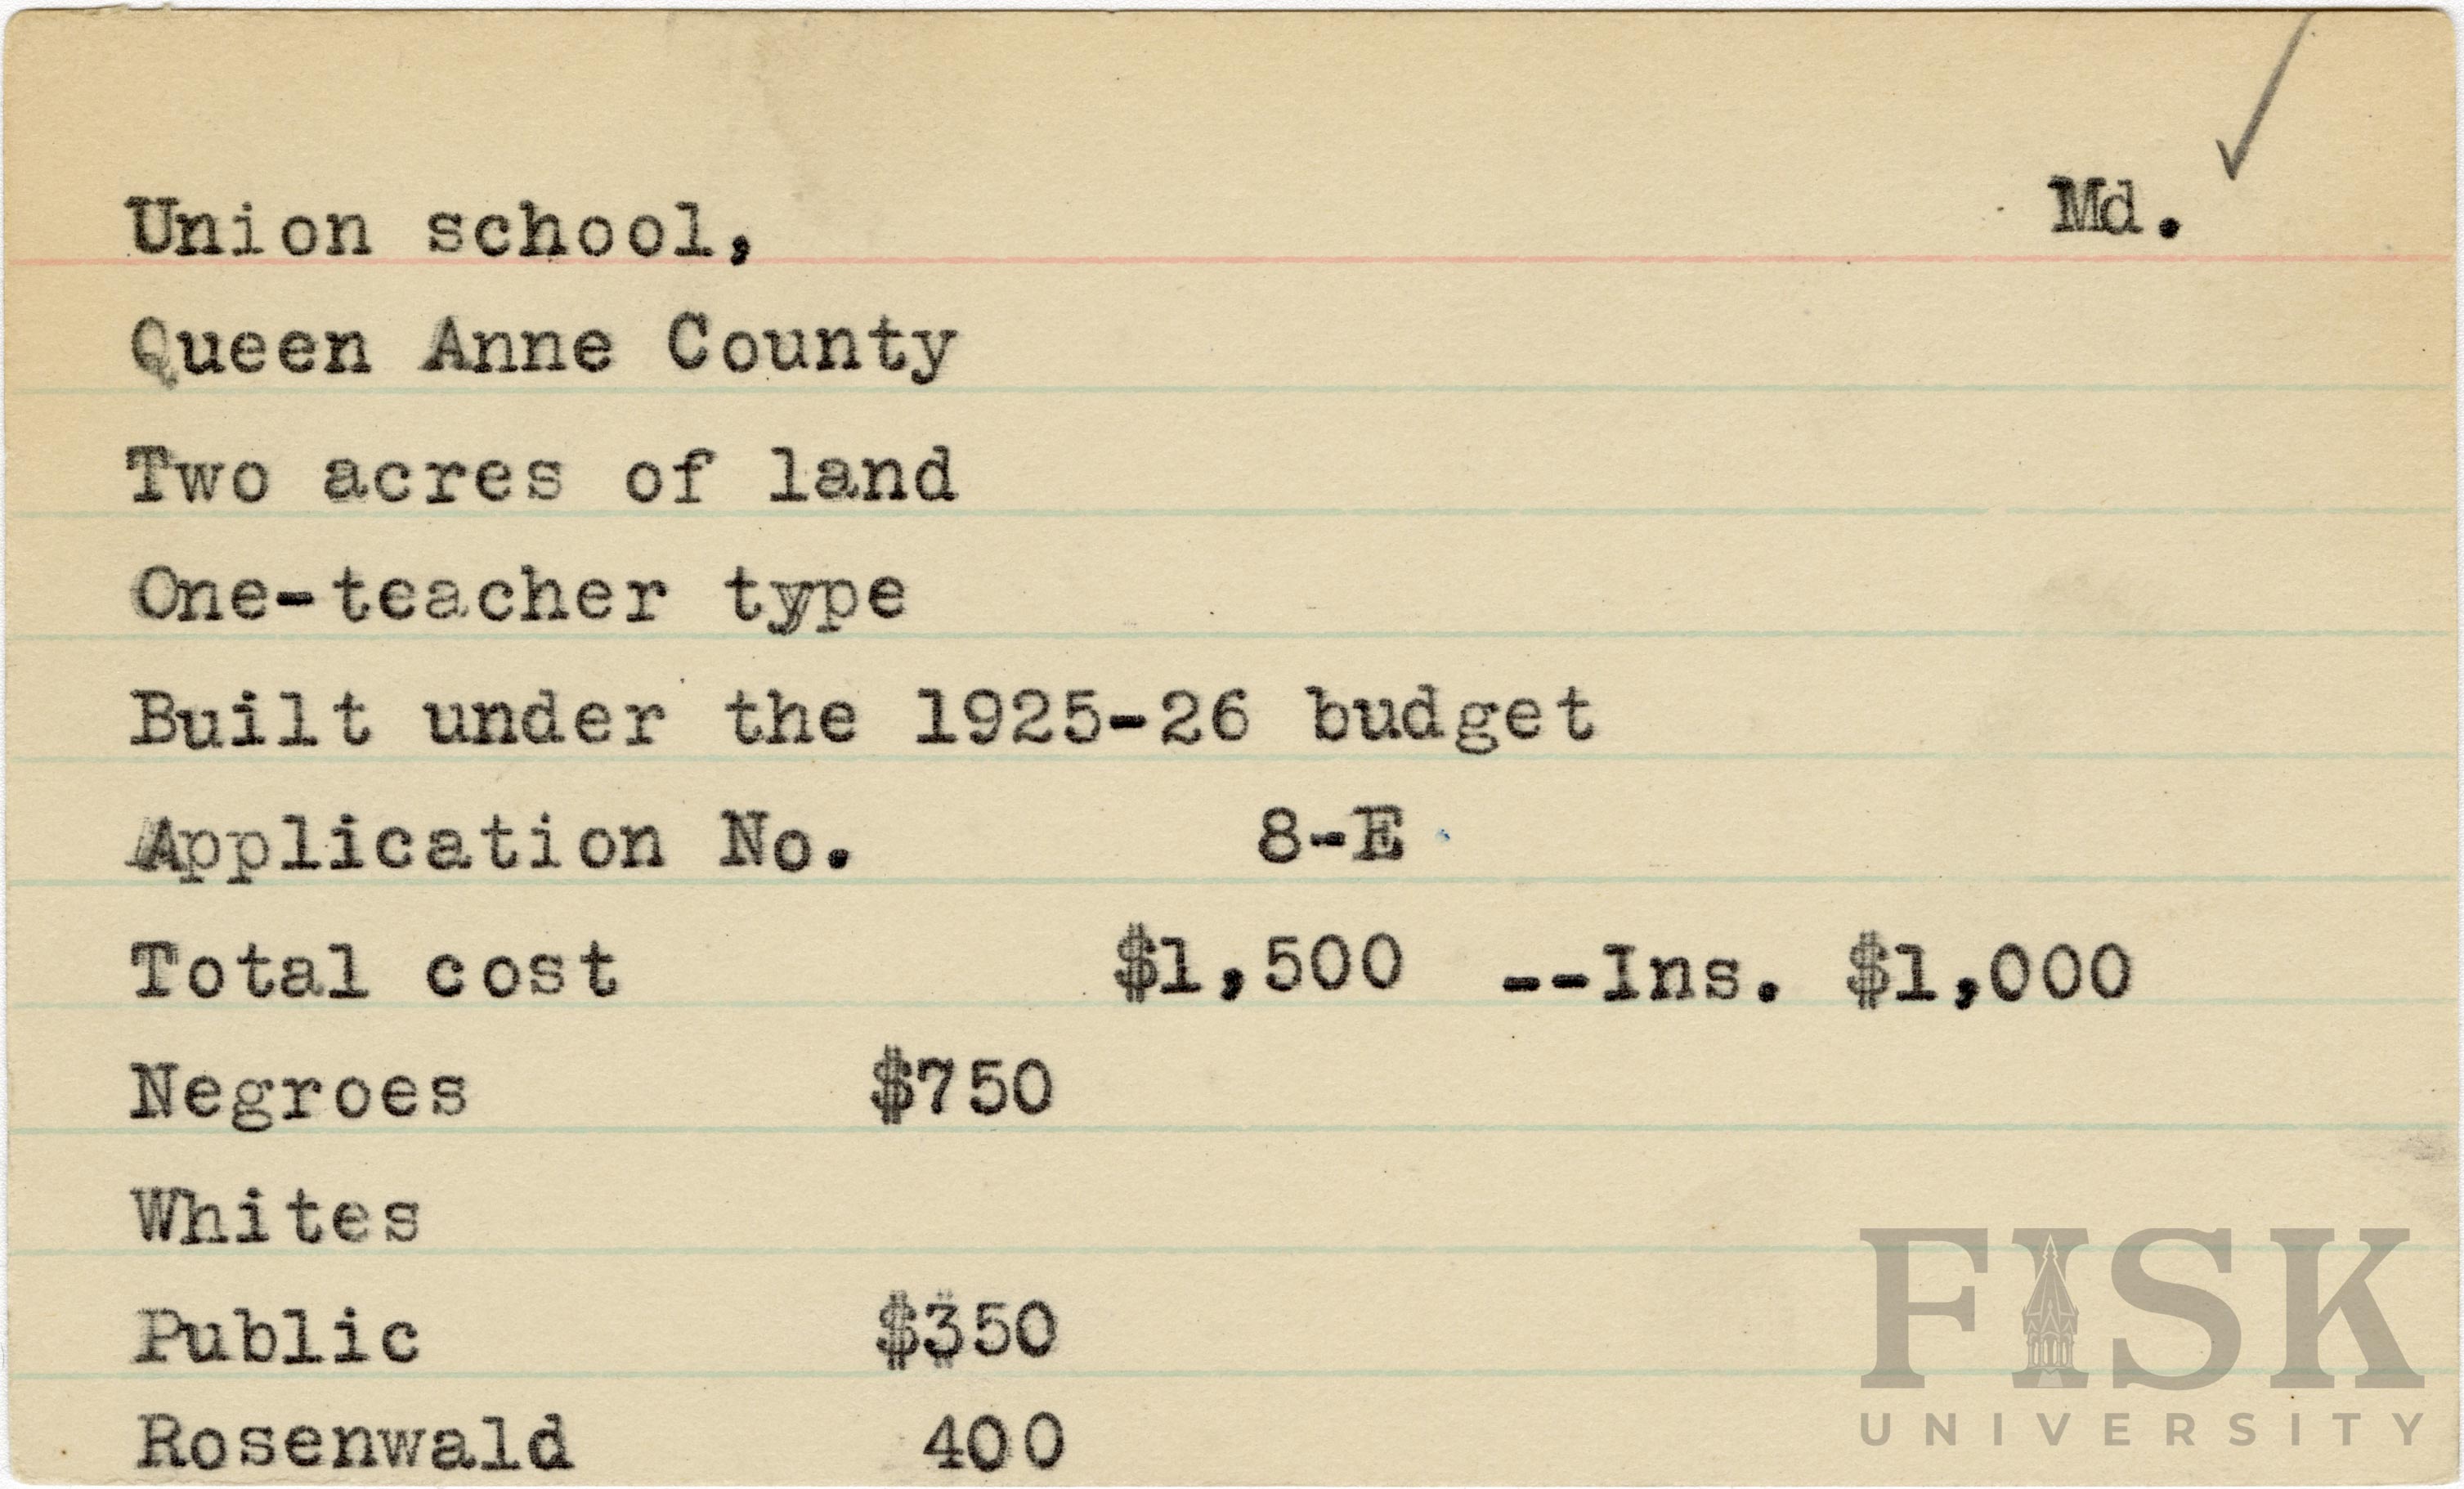 Union school, Md.
Queen Anne County
Two acres of land
One-teacher type
Built under the 1925-26 budget
Application No. 8-E
Total cost $1,500 --Ins. $1,000
Negroes $750
Whites
Public $350
Rosenwald 400
FISK
UNIVERSITY